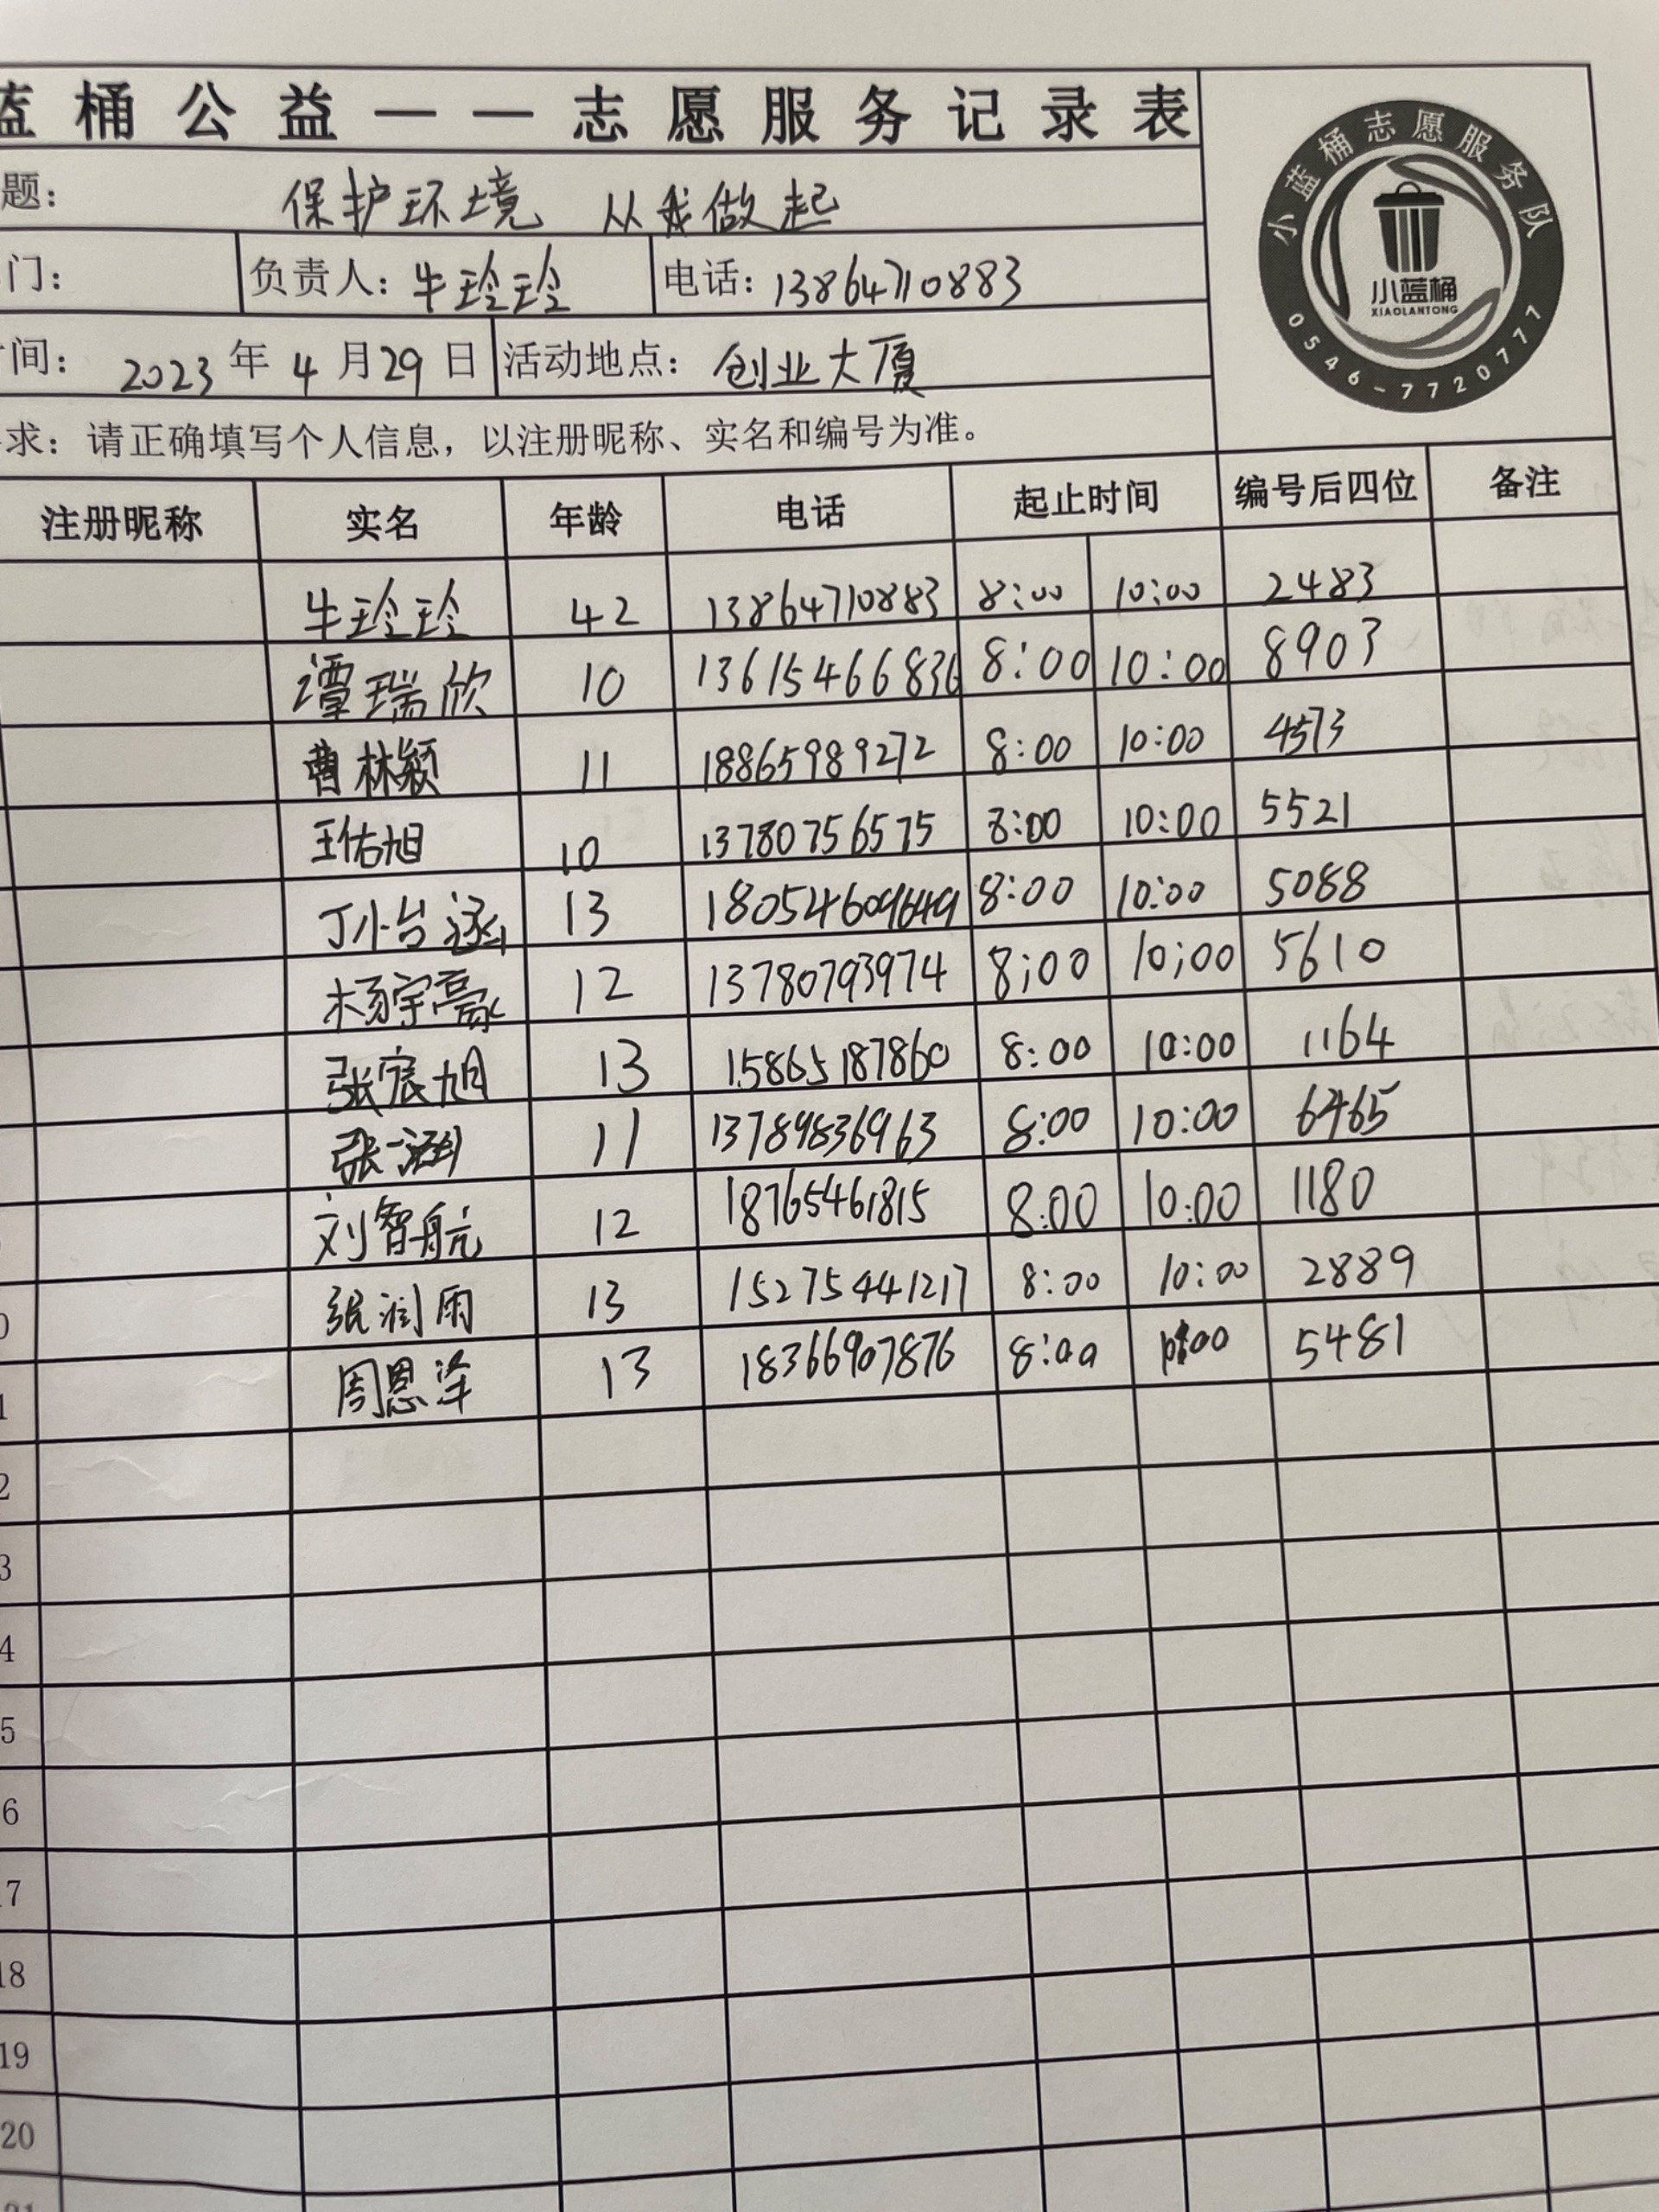 蓝桶公益——志愿服务记录表
题： 保护环境 从我做起
门： 负责人：牛玲玲 电话：13864710883
时间： 2023年4月29日 活动地点：创业大厦
求：请正确填写个人信息，以注册昵称、实名和编号为准。
小蓝桶志愿服务队
小蓝桶
XIAOLANTONG
0546-7720777
注册昵称 实名 年龄 电话 起止时间 编号后四位 备注
牛玲玲 42 13864710883 8:00 10:00 2483
谭瑞欣 10 13615466836 8:00 10:00 8903
曹林颖 11 18865989272 8:00 10:00 4573
王佑旭 10 13780756575 8:00 10:00 5521
丁小台涵 13 18054609649 8:00 10:00 5088
杨宇豪 12 13780793974 8;00 10;00 5610
张宸旭 13 15865187860 8:00 10:00 1164
张涵 11 13789836963 8:00 10:00 6465
刘智航 12 18765461815 8:00 10:00 1180
0 张润雨 13 15275441217 8:00 10:00 2889
1 周恩泽 13 18366907876 8:00 10:00 5481
2
3
4
5
6
17
18
19
20